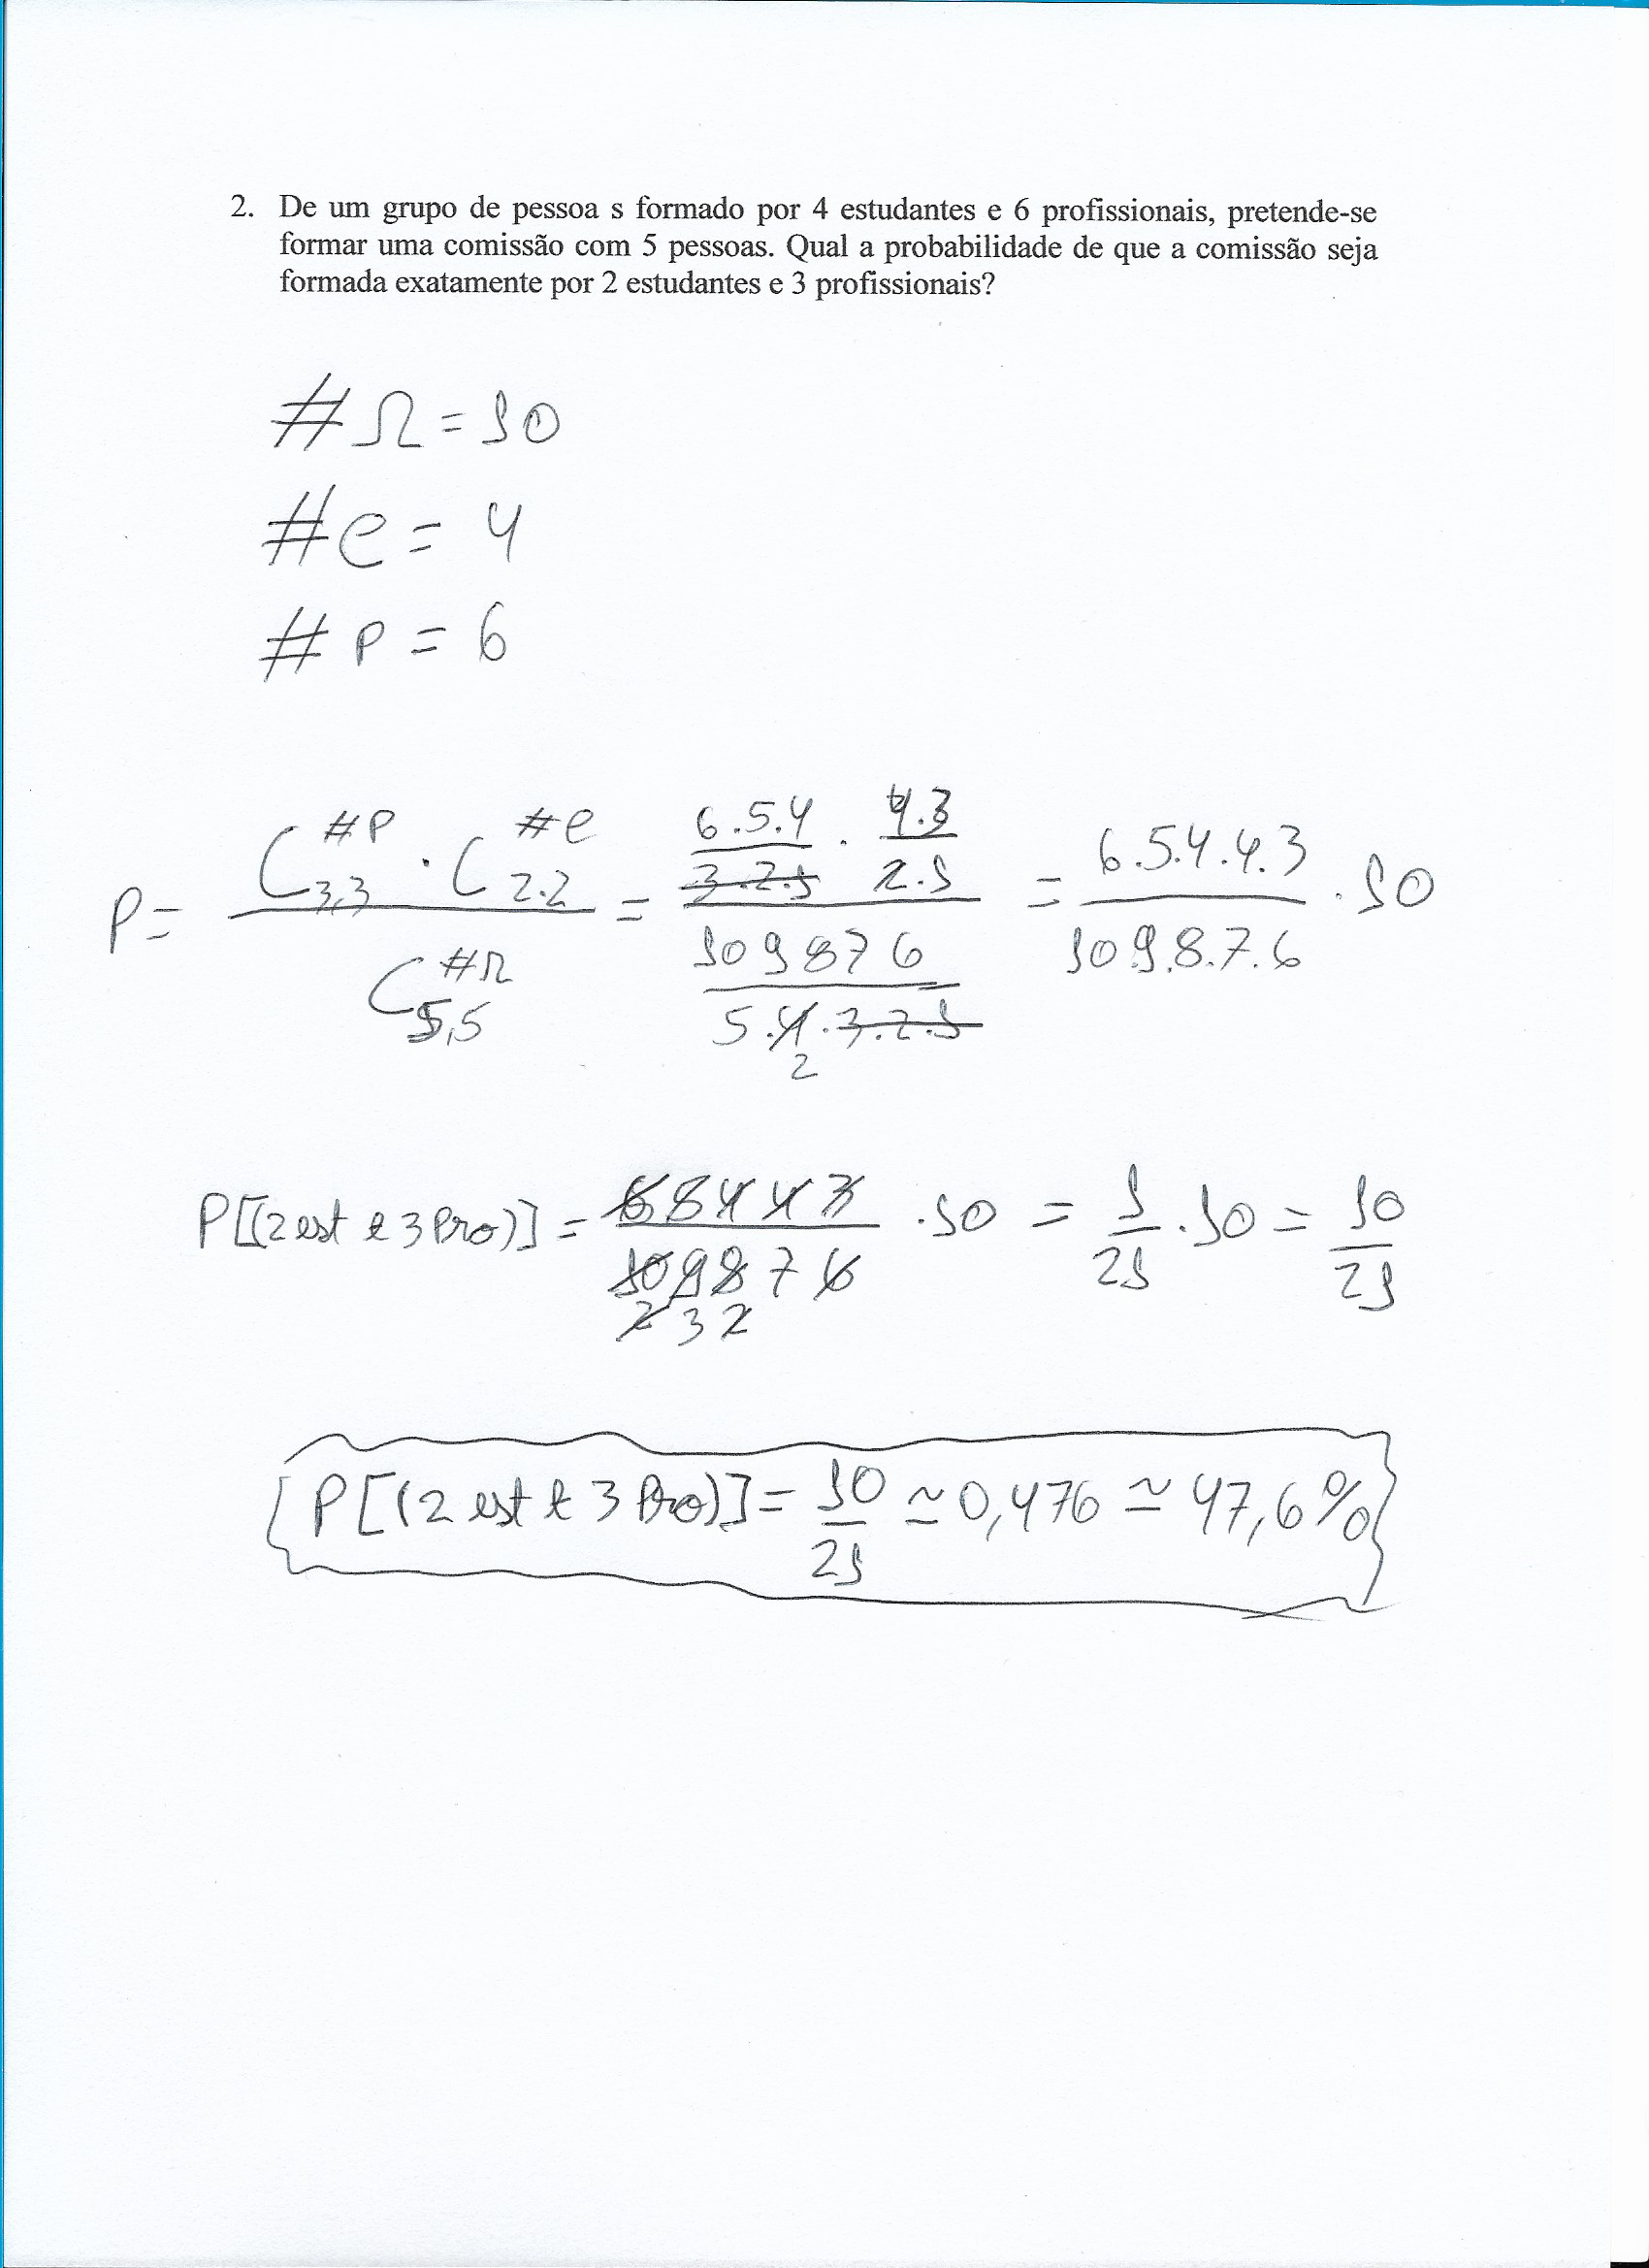 2. De um grupo de pessoa s formado por 4 estudantes e 6 profissionais, pretende-se
formar uma comissão com 5 pessoas. Qual a probabilidade de que a comissão seja
formada exatamente por 2 estudantes e 3 profissionais?
#Ω = 10
#e = 4
#P = 6
P = (C^{#P}_{3,3} . C^{#e}_{2.2}) / C^{#Ω}_{5,5} = ((6.5.4)/(3.2.1) . (4.3)/(2.1)) / ((10 9 8 7 6)/(5.4.3.2.1)) = (6.5.4.4.3)/(10 9.8.7.6) . 10
2
P[(2 est e 3 Pro)] = (6 5 4 4 3)/(10 9 8 7 6) . 10 = 1/21 . 10 = 10/21
2 3 2
P[(2 est e 3 Pro)] = 10/21 ≃ 0,476 ≃ 47,6%